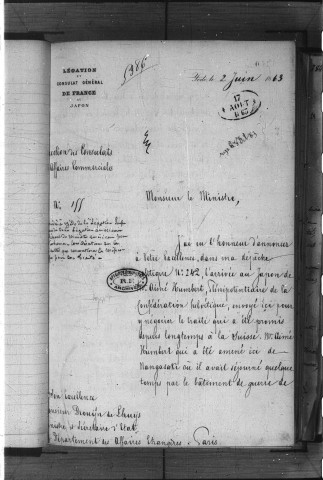 LÉGATION
ET
CONSULAT GÉNÉRAL
DE FRANCE
AU
JAPON
5986
Yédo le 2 Juin 1863
17
AOUT
1863
ction des Consulats
ffaires Commerciales
N°. 155
Monsieur le Ministre,
J'ai eu l'honneur d'annoncer
à Votre Excellence, dans ma dépêche
politique N° 242, l'arrivée au Japon de
M. Aimé Humbert, Plénipotentiaire de la
Confédération helvétique, envoyé ici pour
y négocier le traité qui a été promis
depuis longtemps à la Suisse. Mr. Aimé
Humbert qui a été amené ici de
Nangasaki où il avait séjourné quelque
temps par le bâtiment de guerre de
R.F.
ARCHIVES
Son Excellence
onsieur Drouyn de Lhuys
inistre et Secrétaire d'Etat
u Département des Affaires Etrangères. Paris.